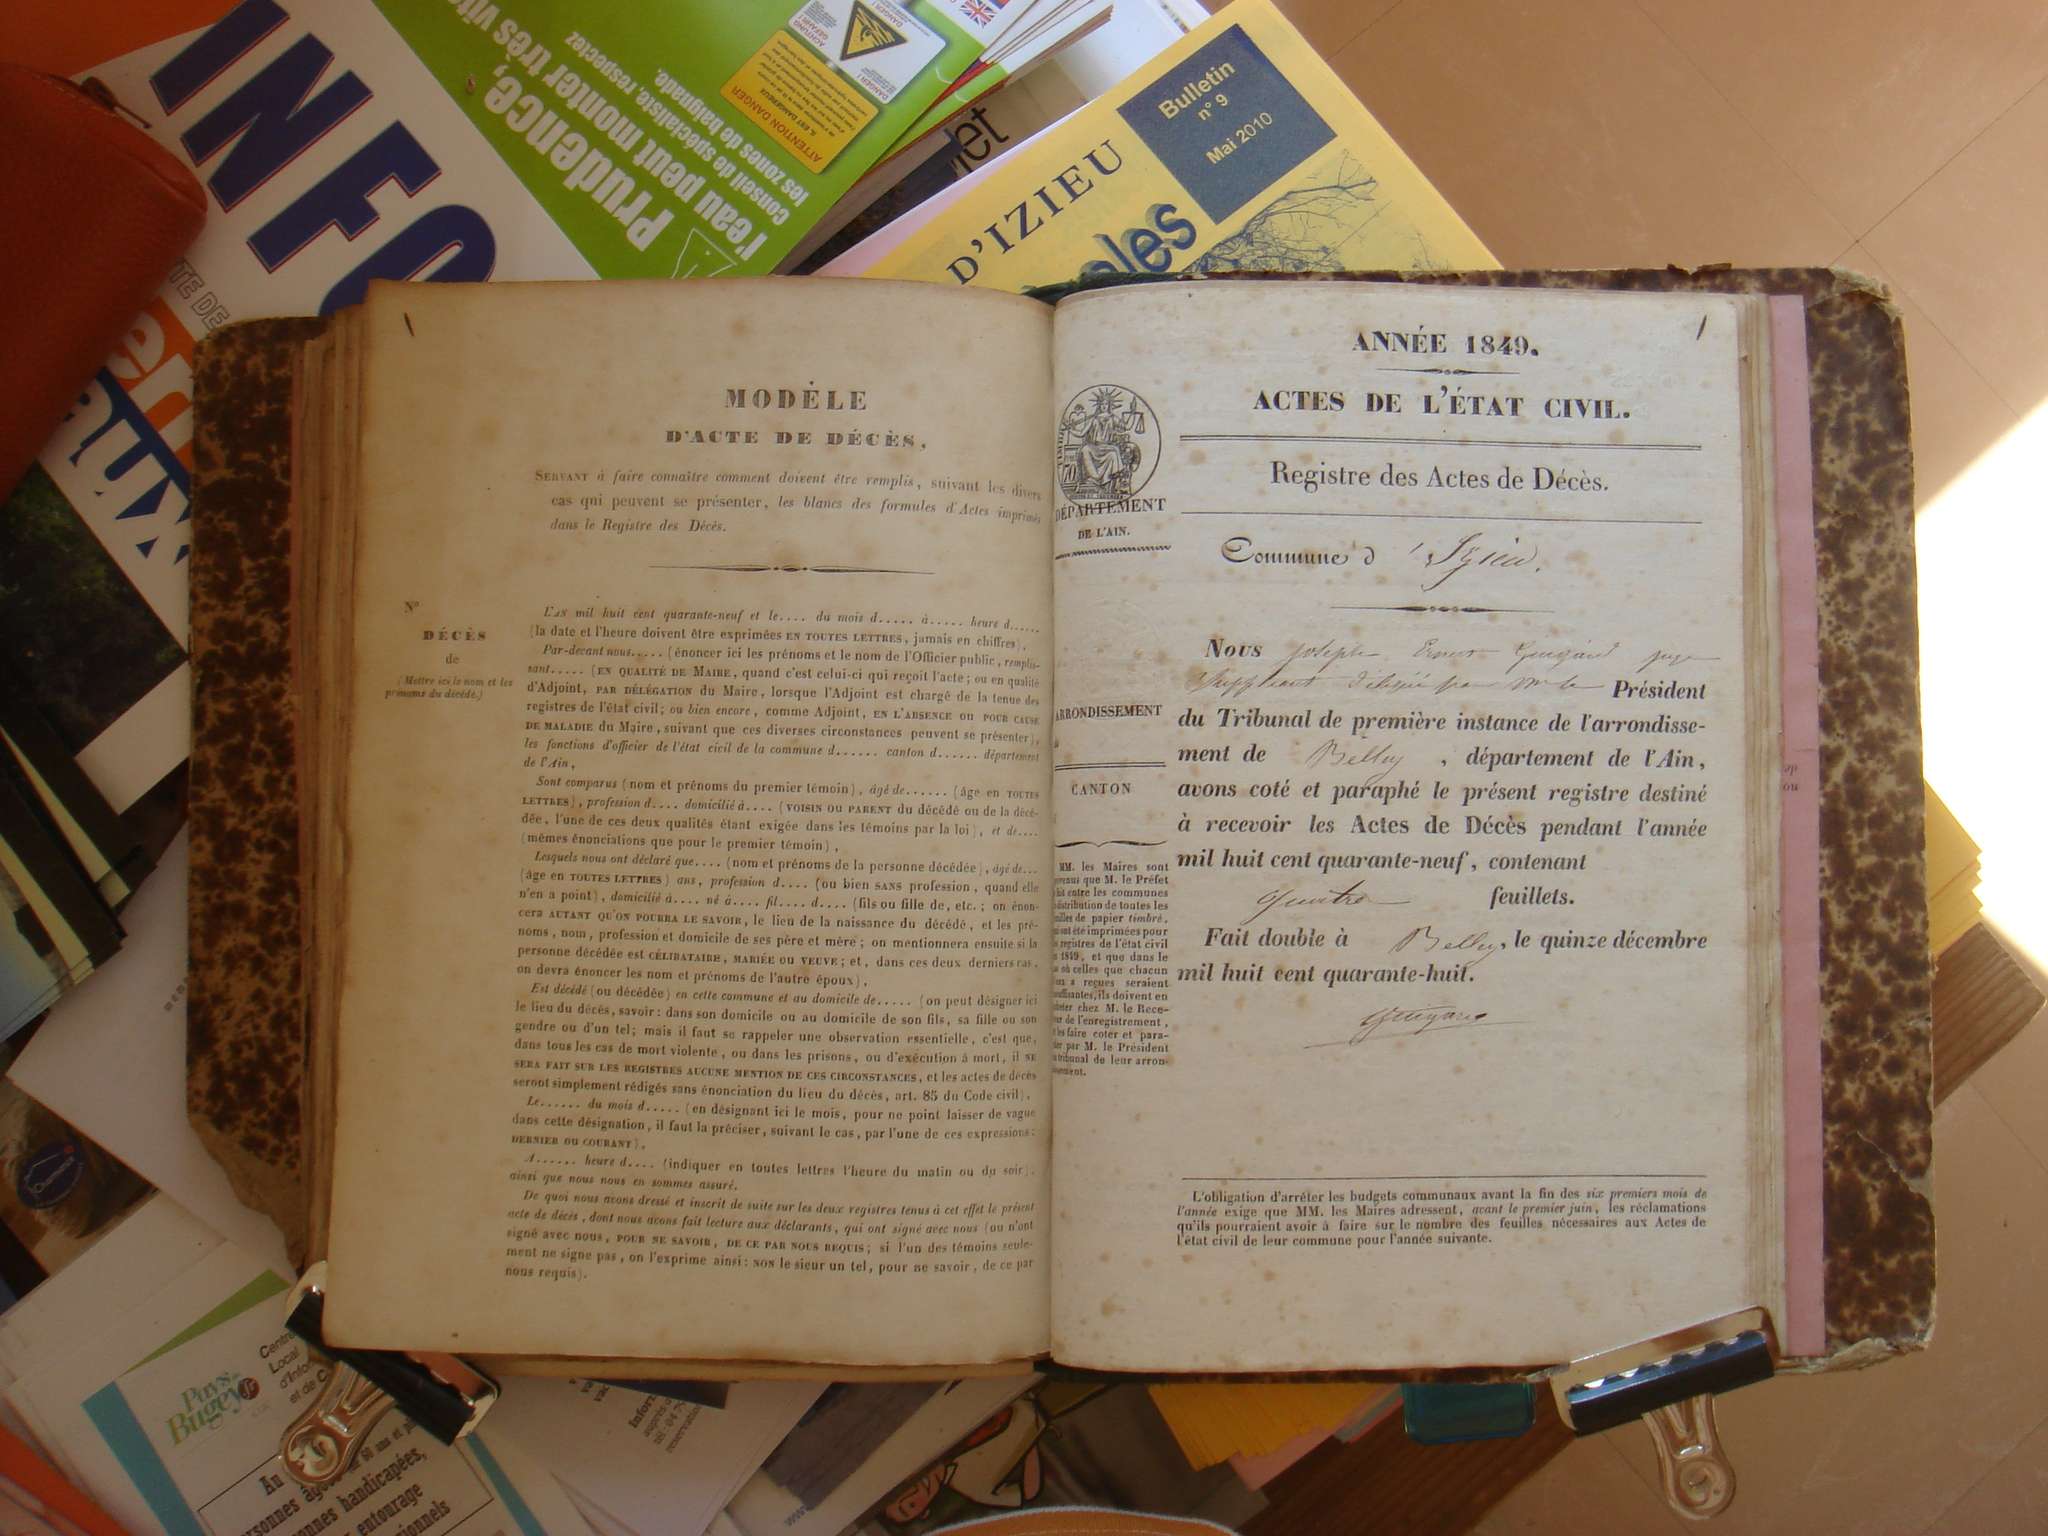 INFO
Prudence,
l'eau peut monter très vite
conseil de spécialiste, respectez
les zones de baignade.
ATTENTION DANGER
IL EST DANGEREUX
ACHTUNG
GEFAHR !
DANGER !
Bulletin
n° 9
Mai 2010
D'IZIEU
MODÈLE
D'ACTE DE DÉCÈS,
SERVANT à faire connaître comment doivent être remplis, suivant les divers
cas qui peuvent se présenter, les blancs des formules d'Actes imprimés
dans le Registre des Décès.
N°
DÉCÈS
de
(Mettre ici le nom et les
prénoms du décédé.)
L'AN mil huit cent quarante-neuf et le.... du mois d..... à..... heure d......
(la date et l'heure doivent être exprimées EN TOUTES LETTRES, jamais en chiffres),
Par-devant nous..... (énoncer ici les prénoms et le nom de l'Officier public, remplis-
sant..... (EN QUALITÉ DE MAIRE, quand c'est celui-ci qui reçoit l'acte; ou en qualité
d'Adjoint, PAR DÉLÉGATION du Maire, lorsque l'Adjoint est chargé de la tenue des
registres de l'état civil; ou bien encore, comme Adjoint, EN L'ABSENCE OU POUR CAUSE
DE MALADIE du Maire, suivant que ces diverses circonstances peuvent se présenter),
les fonctions d'officier de l'état civil de la commune d...... canton d...... département
de l'Ain,
Sont comparus (nom et prénoms du premier témoin), âgé de...... (âge en TOUTES
LETTRES), profession d.... domicilié à.... (VOISIN OU PARENT du décédé ou de la décé-
dée, l'une de ces deux qualités étant exigée dans les témoins par la loi), et de....
(mêmes énonciations que pour le premier témoin),
Lesquels nous ont déclaré que.... (nom et prénoms de la personne décédée), âgé de...
(âge en TOUTES LETTRES) ans, profession d.... (ou bien SANS profession, quand elle
n'en a point), domicilié à.... né à.... fil.... d.... (fils ou fille de, etc.; on énon-
cera AUTANT QU'ON POURRA LE SAVOIR, le lieu de la naissance du décédé, et les pré-
noms, nom, profession et domicile de ses père et mère; on mentionnera ensuite si la
personne décédée est CÉLIBATAIRE, MARIÉE OU VEUVE; et, dans ces deux derniers cas,
on devra énoncer les nom et prénoms de l'autre époux),
Est décédé (ou décédée) en cette commune et au domicile de..... (on peut désigner ici
le lieu du décès, savoir: dans son domicile ou au domicile de son fils, sa fille ou son
gendre ou d'un tel; mais il faut se rappeler une observation essentielle, c'est que,
dans tous les cas de mort violente, ou dans les prisons, ou d'exécution à mort, il NE
SERA FAIT SUR LES REGISTRES AUCUNE MENTION DE CES CIRCONSTANCES, et les actes de décès
seront simplement rédigés sans énonciation du lieu du décès, art. 85 du Code civil),
Le...... du mois d..... (en désignant ici le mois, pour ne point laisser de vague
dans cette désignation, il faut la préciser, suivant le cas, par l'une de ces expressions:
DERNIER OU COURANT),
A...... heure d.... (indiquer en toutes lettres l'heure du matin ou du soir),
ainsi que nous nous en sommes assuré.
De quoi nous avons dressé et inscrit de suite sur les deux registres tenus à cet effet le présent
acte de décès, dont nous avons fait lecture aux déclarants, qui ont signé avec nous (ou n'ont
signé avec nous, POUR NE SAVOIR, DE CE PAR NOUS REQUIS; si l'un des témoins seule-
ment ne signe pas, on l'exprime ainsi: NON le sieur un tel, pour ne savoir, de ce par
nous requis).
1
ANNÉE 1849.
ACTES DE L'ÉTAT CIVIL.
Registre des Actes de Décès.
DÉPARTEMENT
DE L'AIN.
Commune d'Izieu.
Nous Joseph Ernest Guigard juge
Suppléant délégué par Mr le Président
du Tribunal de première instance de l'arrondisse-
ment de Belley, département de l'Ain,
avons coté et paraphé le présent registre destiné
à recevoir les Actes de Décès pendant l'année
mil huit cent quarante-neuf, contenant
quatre feuillets.
Fait double à Belley, le quinze décembre
mil huit cent quarante-huit.
Guigard
ARRONDISSEMENT
CANTON
MM. les Maires sont
que M. le Préfet
entre les communes
distribution de toutes les
de papier timbré,
ont été imprimées pour
registres de l'état civil
1849, et que dans le
où celles que chacun
a reçues seraient
ils doivent en
chez M. le Rece-
de l'enregistrement,
les faire coter et para-
par M. le Président
tribunal de leur arron-
L'obligation d'arrêter les budgets communaux avant la fin des six premiers mois de
l'année exige que MM. les Maires adressent, avant le premier juin, les réclamations
qu'ils pourraient avoir à faire sur le nombre des feuilles nécessaires aux Actes de
l'état civil de leur commune pour l'année suivante.
Pays
Bugey
Centre
Local
d'Infor